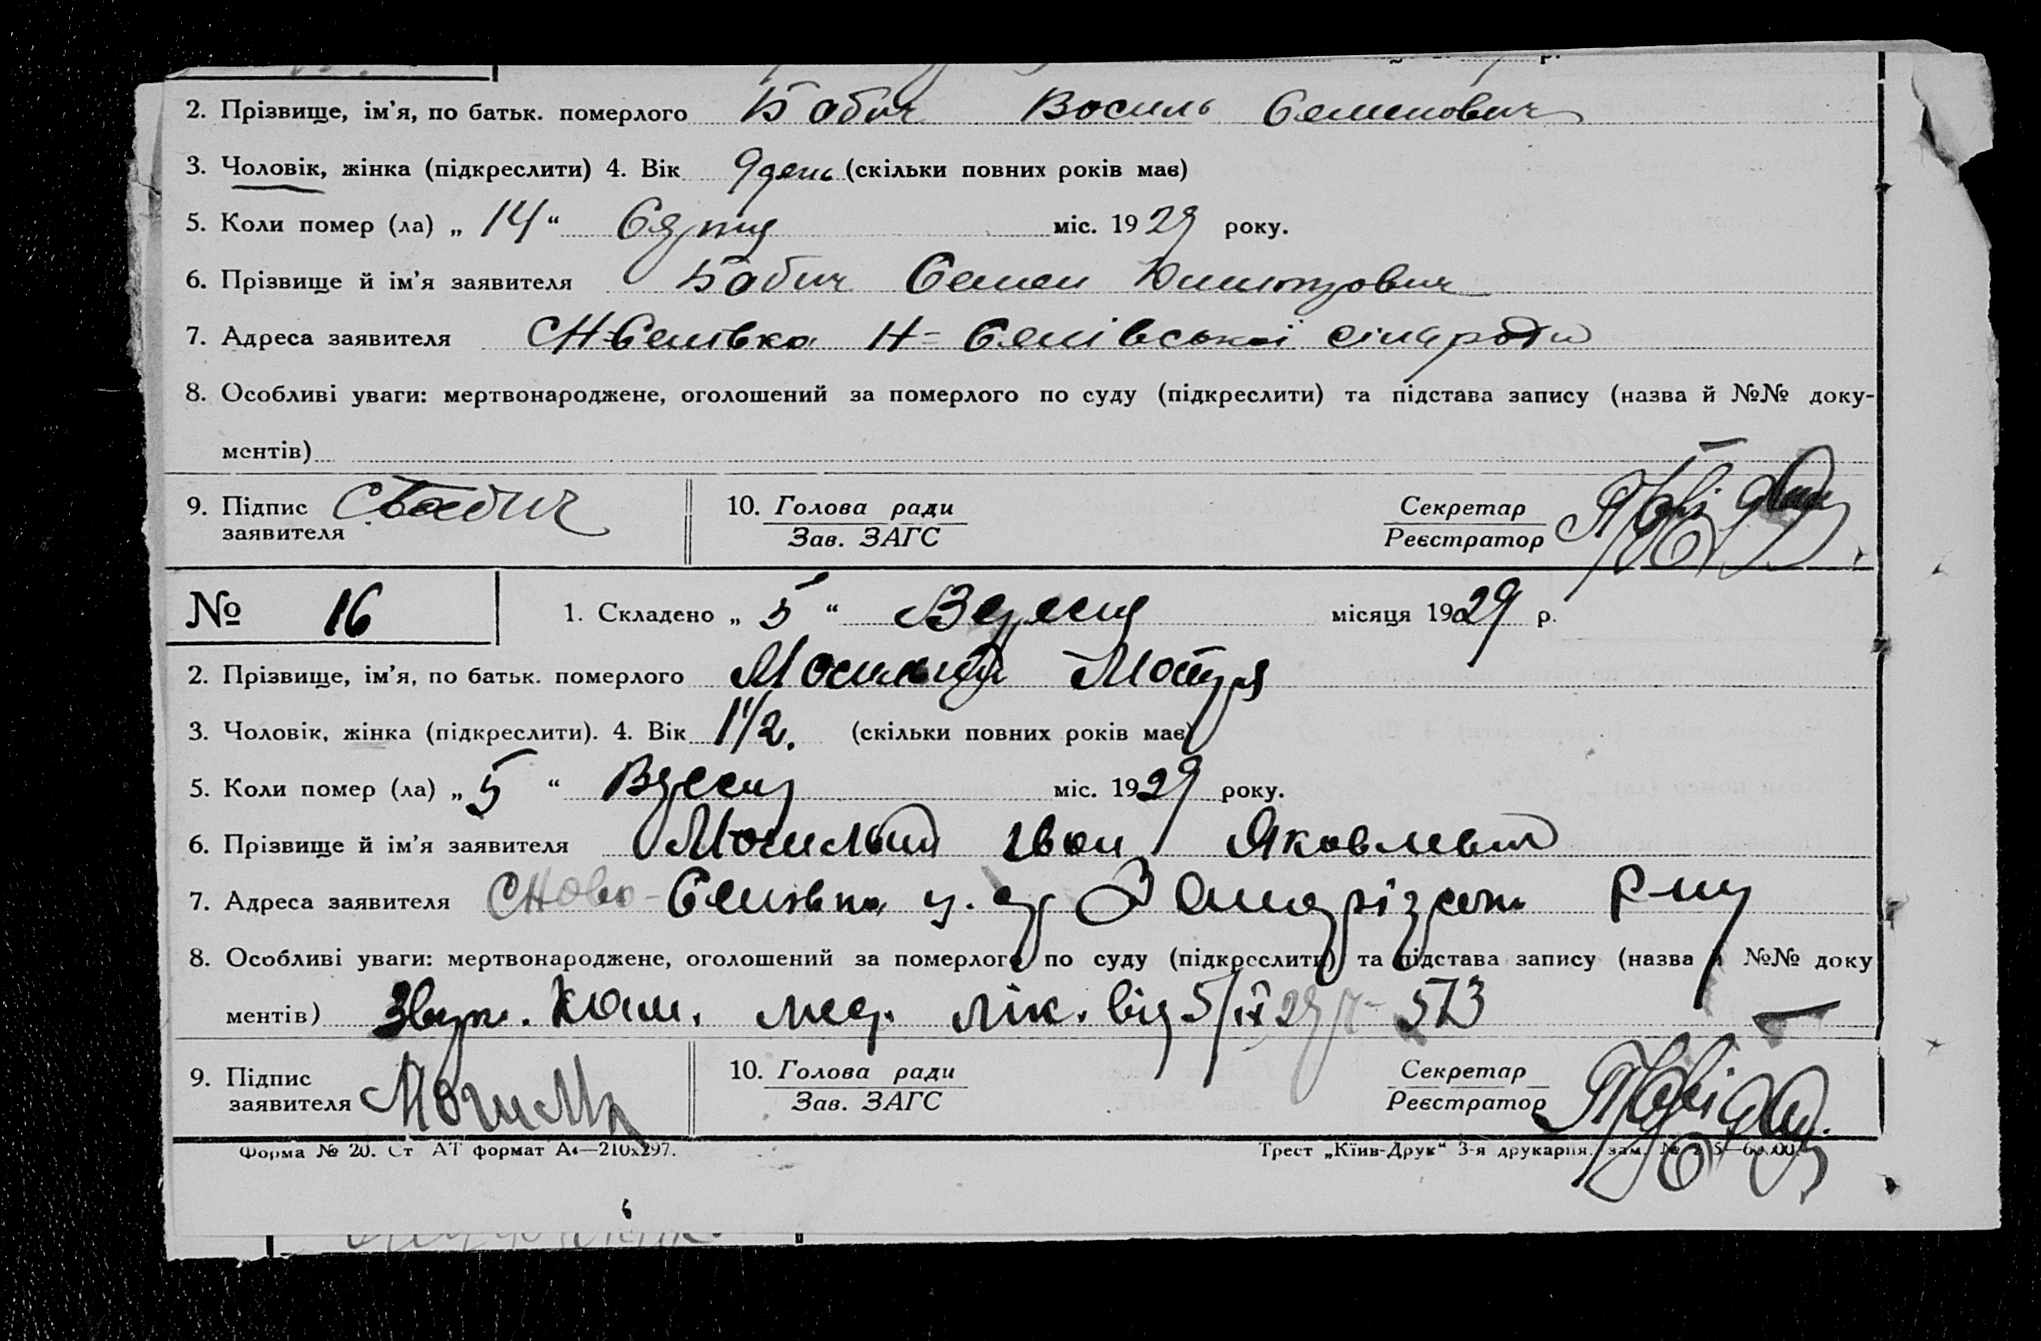 2. Прізвище, ім'я, по батьк. померлого Бабич Василь Семенович
3. Чоловік, жінка (підкреслити) 4. Вік 9 день (скільки повних років має)
5. Коли помер (ла) „ 14 “ Серпня міс. 19 29 року.
6. Прізвище й ім'я заявителя Бабич Семен Дмитрович
7. Адреса заявителя С Н-Семівка Н-Семівської сільради
8. Особливі уваги: мертвонароджене, оголошений за померлого по суду (підкреслити) та підстава запису (назва й №№ доку-
ментів)
9. Підпис заявителя С Бабич 10. Голова ради Зав. ЗАГС Секретар Реєстратор
№ 16 1. Складено „ 5 “ Вересня місяця 1929 р.
2. Прізвище, ім'я, по батьк. померлого Могильний Мотря
3. Чоловік, жінка (підкреслити). 4. Вік 1 1/2. (скільки повних років має)
5. Коли помер (ла) „ 5 “ Вересня міс. 1929 року.
6. Прізвище й ім'я заявителя Могильний Іван Яковлевич
7. Адреса заявителя С Ново-Семівка р-ну
8. Особливі уваги: мертвонароджене, оголошений за померлого по суду (підкреслити) та підстава запису (назва й №№ доку
ментів) Кам. мед. лік. від 5/IX 29 р 573
9. Підпис заявителя 10. Голова ради Зав. ЗАГС Секретар Реєстратор
Форма № 20. Ст АТ формат А4—210x297. Трест „Київ-Друк“ 3-я друкарня. зам. №